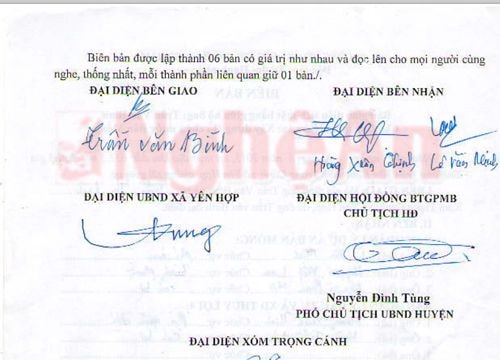 Biên bản được lập thành 06 bản có giá trị như nhau và đọc lên cho mọi người cùng
nghe, thống nhất, mỗi thành phần liên quan giữ 01 bản./.
ĐẠI DIỆN BÊN GIAO ĐẠI DIỆN BÊN NHẬN
Nghệ An
Trần Văn Bình
Hoàng Xuân Thịnh Lê Văn
ĐẠI DIỆN UBND XÃ YÊN HỢP ĐẠI DIỆN HỘI ĐỒNG BTGPMB
CHỦ TỊCH HĐ
Nguyễn Đình Tùng
PHÓ CHỦ TỊCH UBND HUYỆN
ĐẠI DIỆN XÓM TRỌNG CÁNH